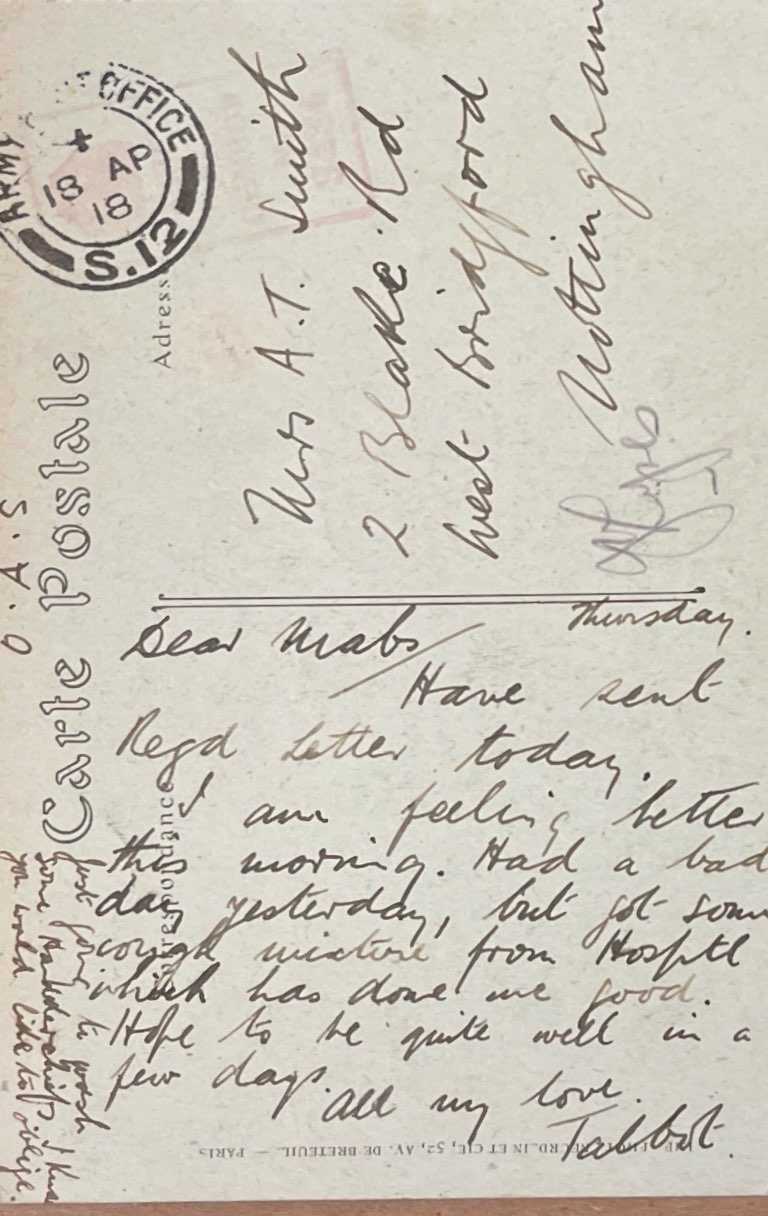 ARMY OFFICE
18 AP
18
S.12
O.A.S
Carte Postale
Adresse
Mrs A.T. Smith
2 Blake Rd
West Bridgford
Nottingham
Correspondance
Thursday.
Dear Mabs
Have sent
Regd Letter today.
I am feeling better
this morning. Had a bad
day yesterday, but got some
cough mixture from Hosptl
which has done me good.
Hope to be quite well in a
few days.
All my love.
Talbot.
Just going to wash
some Handkerchiefs. I know
you would like to oblige.
ET CIE, 52, AV. DE BRETEUIL. — PARIS